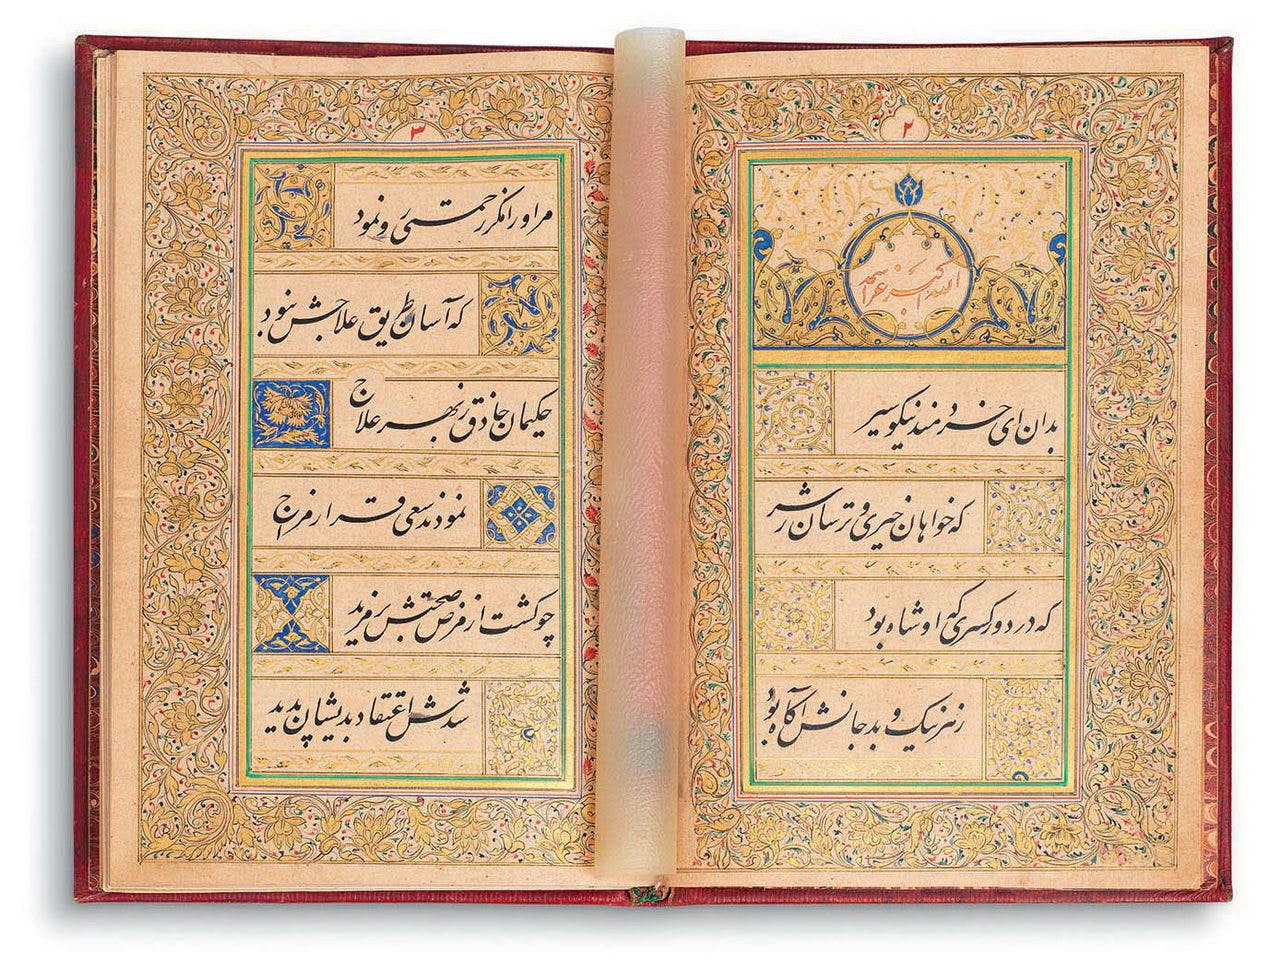 ۲
بدان ای خردمند نیکو سیر
که خواهان خیری و ترسان ز شر
که در دور کسری که او شاه بود
ز هر نیک و بد جانش آگاه بود
۳
مر او را مگر زحمتی رو نمود
که آسان طریق علاجش نبود
حکیمان حاذق ز بهر علاج
نمودند سعی و قرار مزاج
چو گشت از مرض صحتش بر مزید
شدش اعتقاد بدیشان پدید